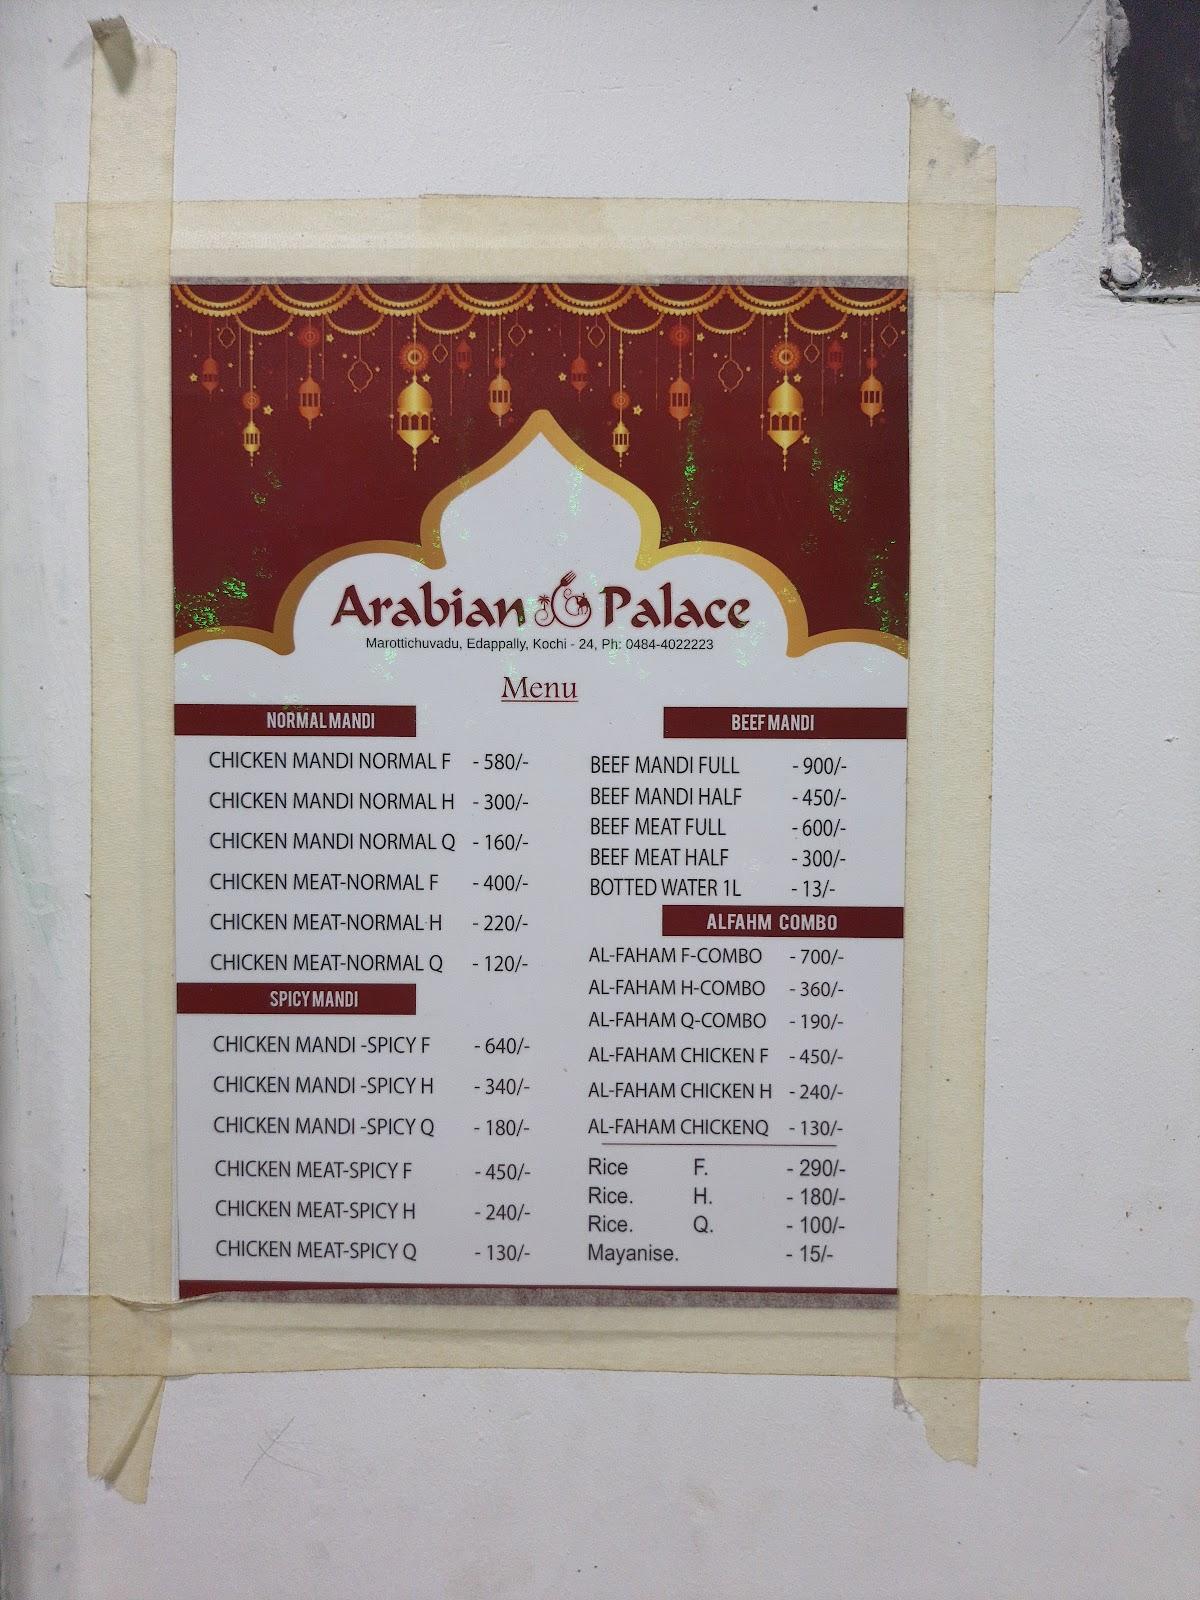 Arabian Palace
Marottichuvadu, Edappally, Kochi - 24, Ph: 0484-4022223
Menu
NORMAL MANDI
CHICKEN MANDI NORMAL F - 580/-
CHICKEN MANDI NORMAL H - 300/-
CHICKEN MANDI NORMAL Q - 160/-
CHICKEN MEAT-NORMAL F - 400/-
CHICKEN MEAT-NORMAL H - 220/-
CHICKEN MEAT-NORMAL Q - 120/-
SPICY MANDI
CHICKEN MANDI -SPICY F - 640/-
CHICKEN MANDI -SPICY H - 340/-
CHICKEN MANDI -SPICY Q - 180/-
CHICKEN MEAT-SPICY F - 450/-
CHICKEN MEAT-SPICY H - 240/-
CHICKEN MEAT-SPICY Q - 130/-
BEEF MANDI
BEEF MANDI FULL - 900/-
BEEF MANDI HALF - 450/-
BEEF MEAT FULL - 600/-
BEEF MEAT HALF - 300/-
BOTTED WATER 1L - 13/-
ALFAHM COMBO
AL-FAHAM F-COMBO - 700/-
AL-FAHAM H-COMBO - 360/-
AL-FAHAM Q-COMBO - 190/-
AL-FAHAM CHICKEN F - 450/-
AL-FAHAM CHICKEN H - 240/-
AL-FAHAM CHICKENQ - 130/-
Rice F. - 290/-
Rice. H. - 180/-
Rice. Q. - 100/-
Mayanise. - 15/-